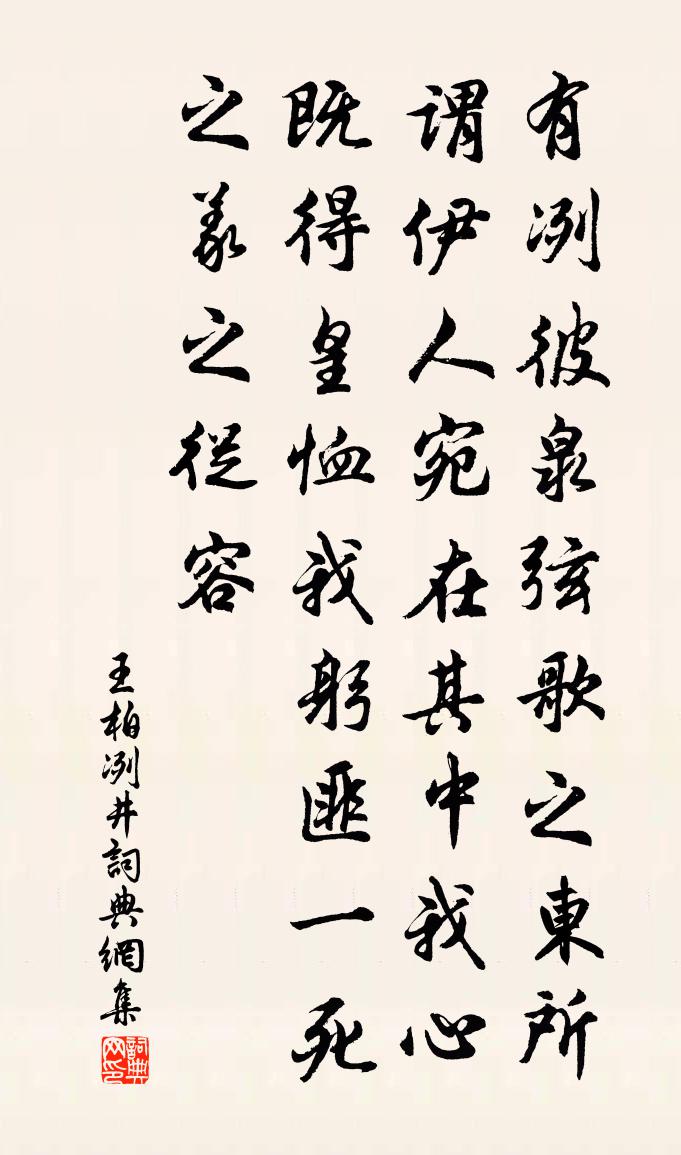 有冽彼泉弦歌之東所
謂伊人宛在其中我心
既得皇恤我躬匪一死
之義之從容
王柏冽井詞典網集
詞典网印